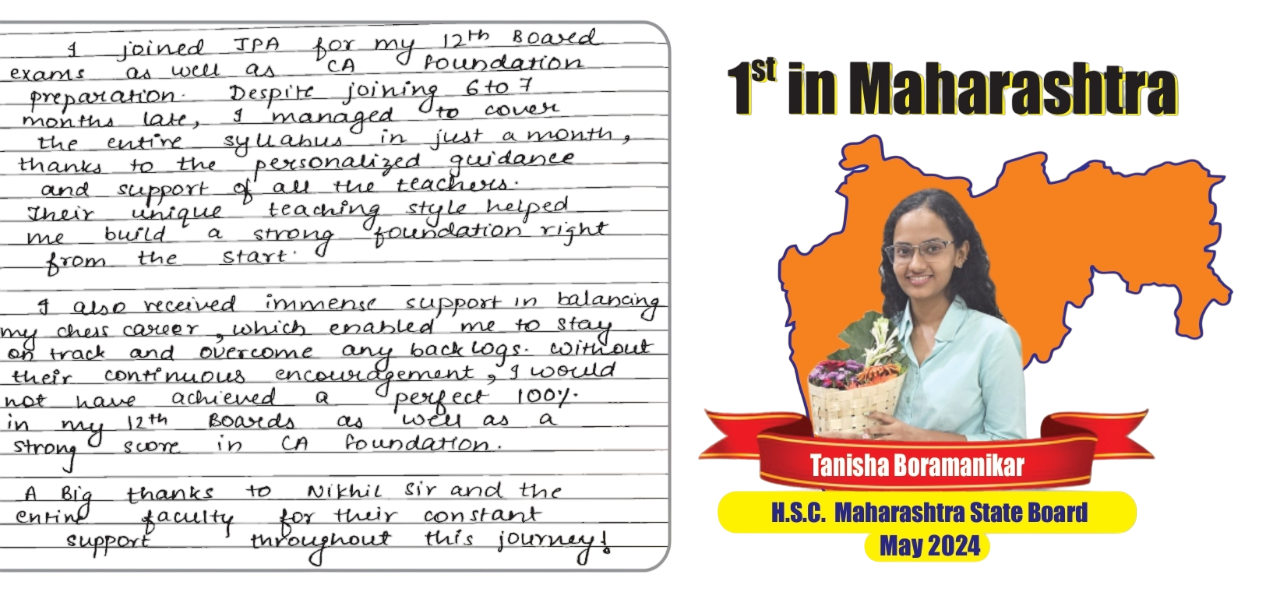 I joined JPA for my 12th Board
exams as well as CA Foundation
preparation. Despite joining 6 to 7
months late, I managed to cover
the entire syllabus in just a month,
thanks to the personalized guidance
and support of all the teachers.
Their unique teaching style helped
me build a strong foundation right
from the start.
I also received immense support in balancing
my chess career, which enabled me to stay
on track and overcome any backlogs. Without
their continuous encouragement, I would
not have achieved a perfect 100%
in my 12th Boards as well as a
strong score in CA Foundation.
A Big thanks to Nikhil Sir and the
entire faculty for their constant
support throughout this journey!
1st in Maharashtra
Tanisha Boramanikar
H.S.C. Maharashtra State Board
May 2024